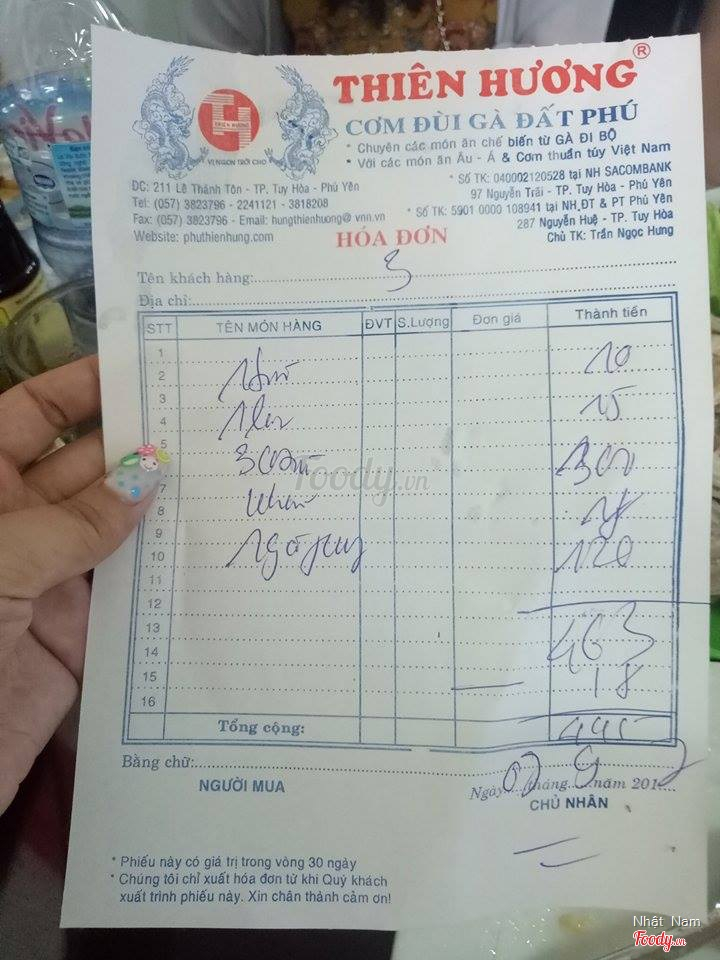 THIÊN HƯƠNG ®
THIEN HUONG
VỊ NGON TRỜI CHO
CƠM ĐÙI GÀ ĐẤT PHÚ
* Chuyên các món ăn chế biến từ GÀ ĐI BỘ
* Với các món ăn Âu - Á & Cơm thuần túy Việt Nam
ĐC: 211 Lê Thánh Tôn - TP. Tuy Hòa - Phú Yên
Tel: (057) 3823796 - 2241121 - 3818208
Fax: (057) 3823796 - Email: hungthienhuong@vnn.vn
Website: phuthienhung.com
* Số TK: 040002120528 tại NH SACOMBANK
97 Nguyễn Trãi - TP. Tuy Hòa - Phú Yên
* Số TK: 5901 0000 108941 tại NH,ĐT & PT Phú Yên
287 Nguyễn Huệ - TP. Tuy Hòa
Chủ TK: Trần Ngọc Hưng
HÓA ĐƠN
Tên khách hàng: 3
Địa chỉ:
STT TÊN MÓN HÀNG ĐVT S.Lượng Đơn giá Thành tiền
1
2 10
3
4 15
5
300
7
8 18
9
10 120
11
12
13 463
14
15 18
16
Tổng cộng: 445
Bằng chữ:
NGƯỜI MUA
Ngày 07 tháng 9 năm 201
CHỦ NHÂN
* Phiếu này có giá trị trong vòng 30 ngày
* Chúng tôi chỉ xuất hóa đơn từ khi Quý khách
xuất trình phiếu này. Xin chân thành cảm ơn!
Foody.vn
Nhật Nam
Foody.vn